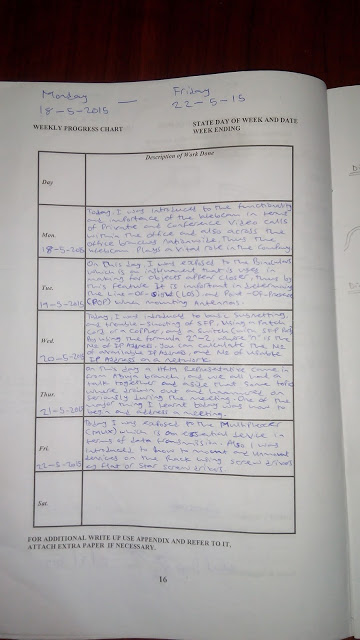 Monday — Friday
18-5-2015 22-5-15
STATE DAY OF WEEK AND DATE
WEEKLY PROGRESS CHART WEEK ENDING
Description of Work Done
Day
Today, I was introduced to the functionality
and importance of the Webcam in terms
of Private and Conference Video calls
Mon. within the office and also across the
office branches nationwide. Thus the
18-5-2015 webcam plays a vital role in the Company.
On this day, I was exposed to the Binoculars
which is an instrument that is used in
making far objects appear close, thus by
Tue. this feature it is important in determining
the Line-of-Sight (LOS) and Point-Of-Presence
19-5-2015 (POP) when mounting antennas.
Today, I was introduced to basic subnetting
and trouble-shooting of SFP, using a Patch
Cord or a Coupler, and a Switch with SFP
Wed. By using the formula 2ⁿ-2, where "n" is the
No of IP Address. You can calculate the No
of available IP Address, and No of usable
20-5-2015 IP Address on a network.
On this day a Representative came in
from Abuja branch, and we all had a
talk together and aside that some
were drawn out and enhanced on
Thur. seriously during the meeting. One of the
major thing I learnt today was how to
21-5-2015 begin and address a meeting.
Today I was exposed to the Multiplexer
(MUX) which is an essential device in
terms of data transmission. Also I was
Fri. introduced to how to mount and unmount
devices on the Rack using screw drivers
22-5-2015 eg Flat or Star screw drivers
Sat.
FOR ADDITIONAL WRITE UP USE APPENDIX AND REFER TO IT.
ATTACH EXTRA PAPER IF NECESSARY.
16